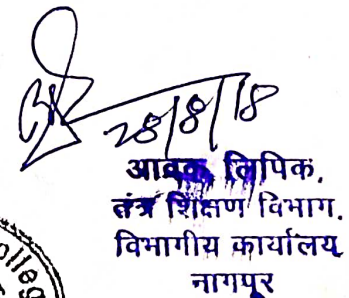 28/8/18
आवक लिपिक,
तंत्र शिक्षण विभाग.
विभागीय कार्यालय
नागपूर
olleg